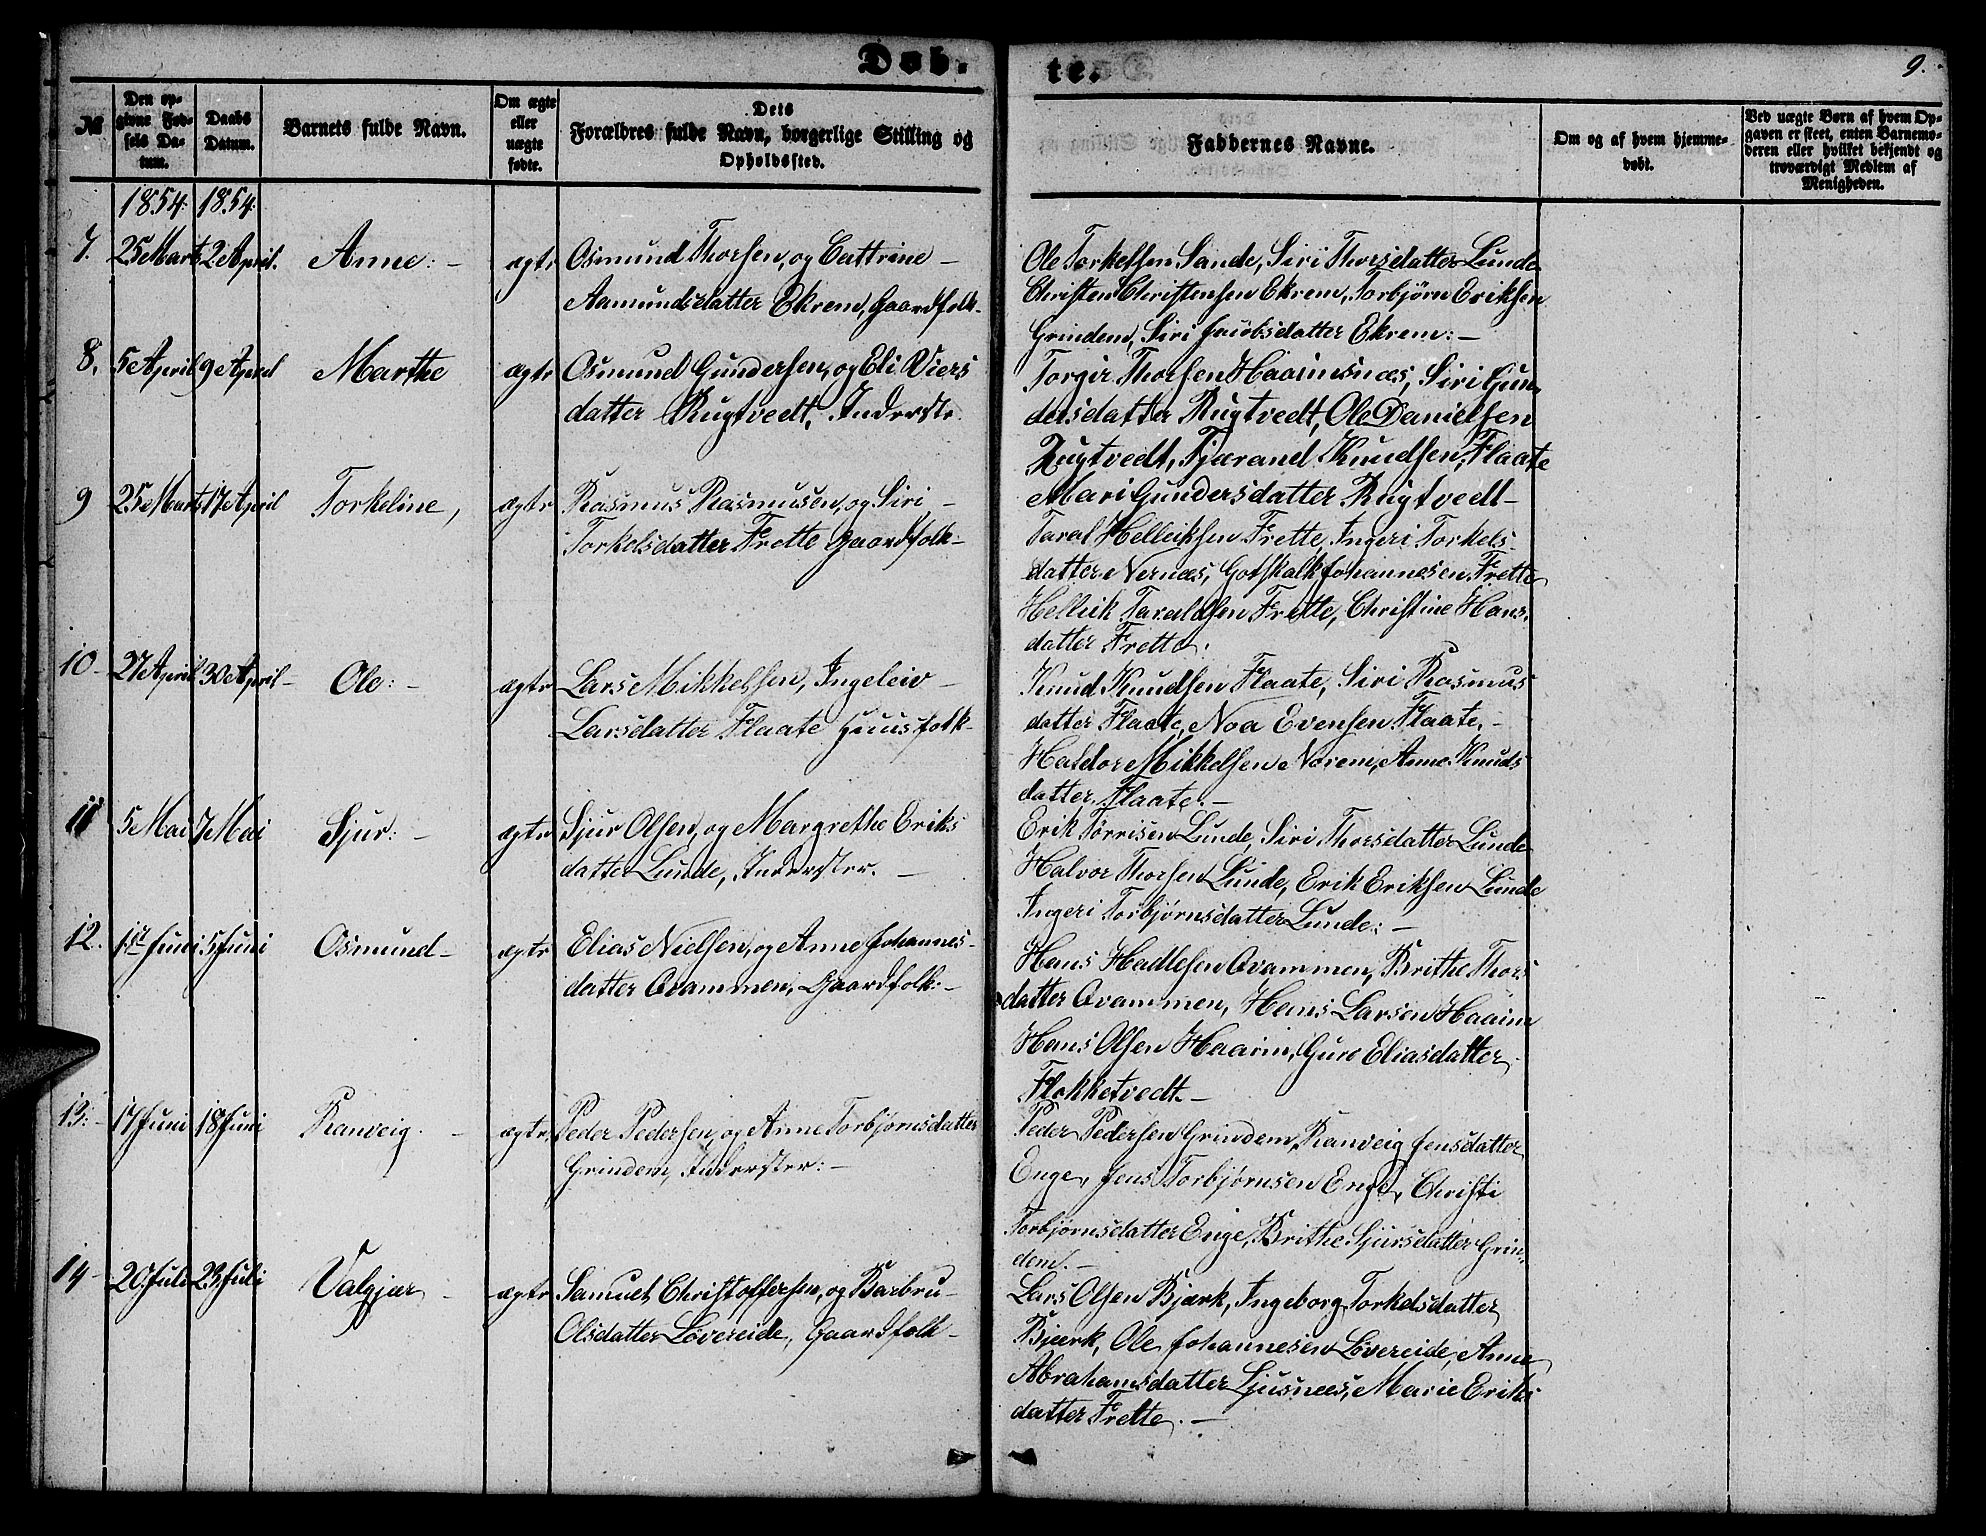 Døb-
te.
9.
№
Den op-
givne Fød-
sels Da-
tum.
Daabs
Datum.
Barnets fulde Navn.
Om ægte
eller
uægte
fødte.
Dets
Forældres fulde Navn, borgerlige Stilling og
Opholdssted.
Faddernes Navne.
Om og af hvem hjemme-
døbt.
Ved uægte Børn af hvem Op-
gaven er skeet, enten Barnemo-
deren eller hvilket bekjendt og
troværdigt Medlem af
Menigheden.
1854. 1854.
7. 25 Marts 2 April. Anne: - ægte Osmund Thorsen, og Cattrine -
Aamundsdatter Ekrem, Gaardfolk.
Ole Torkelsen Sande, Siri Thorsdatter Lunde
Christen Christensen Ekrem, Torbjørn Eriksen
Grindem, Siri Jacobsdatter Ekrem: -
8. 5 April 9 April Marthe ægte Osmund Gundersen, og Eli Viers
datter Rugtvedt, Inderste.
Torgir Thorsen Haaimsnæs, Siri Gun-
dersdatter Rugtvedt, Ole Danielsen
Rugtvedt, Tjærand Knudsen, Flaate
Mari Gundersdatter Rugtvedt -
9 25 Marts 17 April Torkeline, ægte Rasmus Rasmusen, og Siri, -
Torkelsdatter Frette Gaardfolk:-
Taral Helleiksen Frette, Ingeri Torkels-
datter Nernæs, Gotskalk Johannesen, Frette
Helleik Taraldsen Frette, Christine Hans-
datter Frette.
10 - 27 April 30 April - Ole: - ægte Lars Mikkelsen, Ingeleiv -
Larsdatter Flaate Huusfolk -
Knud Knudsen Flaate, Siri Rasmus
datter Flaate, Noa Evensen Flaate. -
Haldor Mikkelsen Norem, Anne Knuds
datter Flaate. -
11 5 Mai 7 Mai Sjur: - ægte Sjur Olsen, og Margrethe Eriks
datter Lunde, Inderster. -
Erik Tørrisen Lunde, Siri Thorsdatter Lunde
Halvor Thorsen Lunde, Erik Eriksen Lunde
Ingeri Torbjørnsdatter Lunde: -
12. 1st Juni 5 Juni Osmund - ægte Elias Nielsen, og Anne Johannes-
datter Qvammen, Gaardfolk:-
Hans Hadlesen Qvammen, Brithe Thors
datter Qvammen, Hans Larsen Haaim
Hans Olsen Haaim, Guro Eliasdatter
Flokketvedt. -
13. - 17 Juni 18 Juni Ranveig. - ægte Peder Pedersen, og Anne Torbjørnsdatter
Grindem, Inderster: -
Peder Pedersen Grindem, Ranveig Jensdatter
Enge, Jens Torbjørnsen Enge, Christi
Torbjørnsdatter Enge, Brithe Sjursdatter Grin-
dem. -
14 - 20. Juli 23 Juli Valgjær - ægte Samuel Christoffersen, og Barbru -
Olsdatter Løvereide, Gaardfolk -
Lars Olsen Bjærk, Ingeborg Torkelsdatter
Bjærk, Ole Johannesen Løvereide, Anne
Abrahamsdatter Ljusnæs, Marie Eriks
datter Frette. -